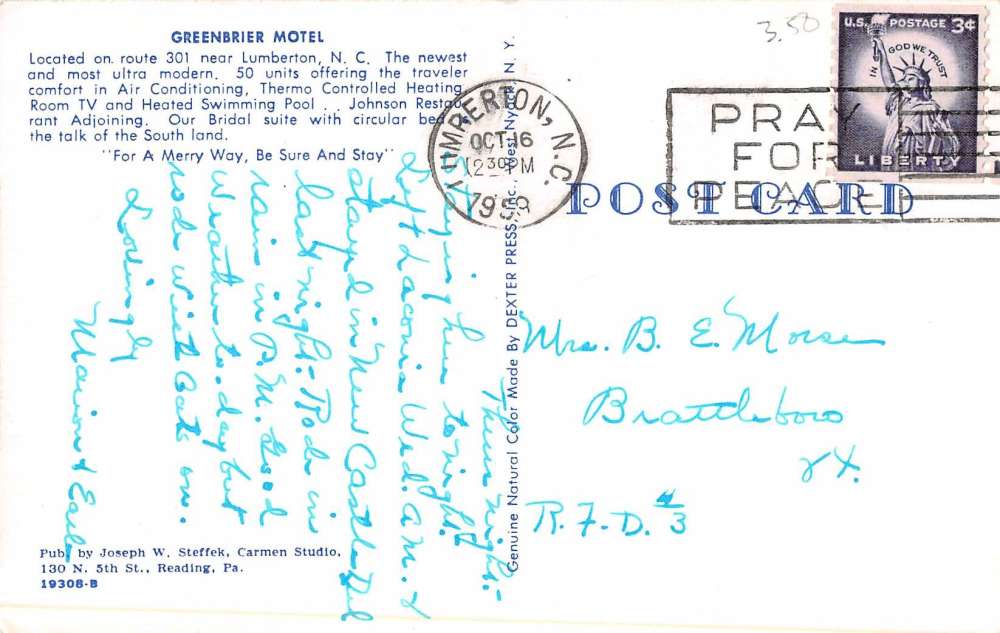 GREENBRIER MOTEL
Located on route 301 near Lumberton, N. C. The newest
and most ultra modern. 50 units offering the traveler
comfort in Air Conditioning, Thermo Controlled Heating
Room TV and Heated Swimming Pool . . Johnson Restau
rant Adjoining. Our Bridal suite with circular bed
the talk of the South land.
"For A Merry Way, Be Sure And Stay"
Thurs night:-
Staying here tonight.
Left Laconia Wed. a.m. &
stayed in New Castle Del
last night. Rode in
rain in P.M. Good
Weather to-day but
rode with Coats on.
Lovingly
Marion & Earle
Pub. by Joseph W. Steffek, Carmen Studio,
130 N. 5th St., Reading, Pa.
19308-B
Genuine Natural Color Made By DEXTER PRESS, Inc., West Nyack, N. Y.
3.50
LUMBERTON, N.C.
OCT 16
12 30 PM
PRAY
FOR
PEACE
U.S. POSTAGE 3¢
IN GOD WE TRUST
LIBERTY
POST CARD
Mrs. B. E. Morse
Brattleboro
Vt.
R.F.D. #3